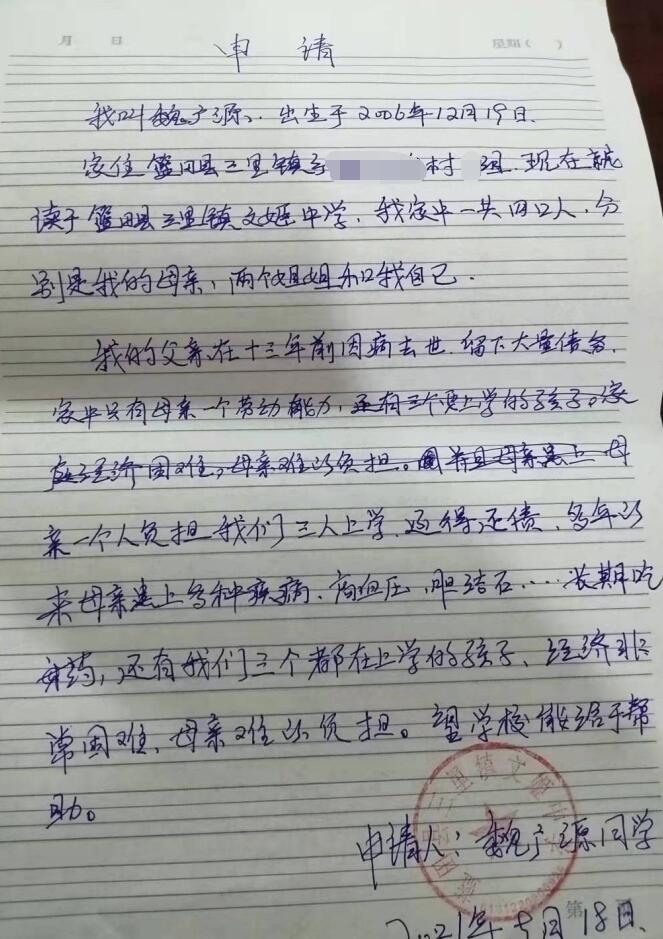 月 日 星期( )
申 请
我叫魏广源、出生于2006年12月19日.
家住篮田县三里镇 村 组.现在就
读于篮田县三里镇文姬中学,我家中一共四口人,分
别是我的母亲,两个姐姐和我自己.
我的父亲在十三年前因病去世.留下大量债务.
家中只有母亲一个劳动能力,还有三个要上学的孩子,家
庭经济困难,母亲难以负担。并且母亲患上 母
亲一个人负担我们三人上学.还得还债,多年以
来母亲患上多种疾病、高血压,胆结石....长期吃
药,还有我们三个都在上学的孩子、经济非
常困难、母亲难以负担。望学校能给予帮
助。
三里镇文姬中
申请人:魏广源同学
第
2021年5月18日.